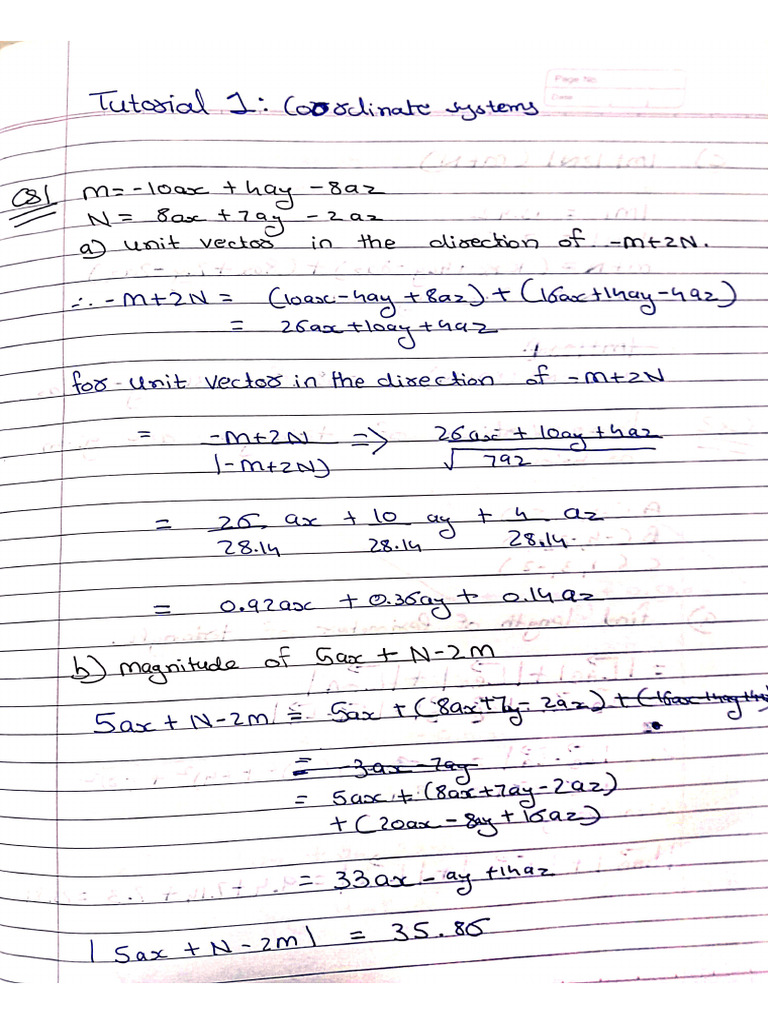 Page No.
Date
Tutorial 1: Coordinate systems
Q1 M = -10ax + 4ay - 8az
N = 8ax + 7ay - 2az
a) unit vector in the direction of -M+2N.
∴ -M+2N = (10ax - 4ay + 8az) + (16ax + 14ay - 4az)
= 26ax + 10ay + 4az
for unit vector in the direction of -M+2N
= -M+2N / |-M+2N| => 26ax + 10ay + 4az / √792
= 26/28.14 ax + 10/28.14 ay + 4/28.14 az
= 0.92ax + 0.36ay + 0.14az
b) magnitude of 5ax + N - 2M
5ax + N - 2M = 5ax + (8ax + 7y - 2az) + (16ax + 4ay + 4
= -3ax - 7ay
= 5ax + (8ax + 7ay - 2az)
+ (20ax - 8ay + 16az)
= 33ax - ay + 14az
|5ax + N - 2M| = 35.86